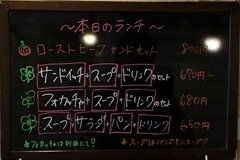 ～本日のランチ～
ローストビーフサンドセット 800円
サンドイッチ+スープ+ドリンクのセット 670円～
フォカッチャ+スープ+ドリンクのセット 680円
スープ+サラダ+パン+ドリンク 650円
フォカッチャは別紙にて!
スープは